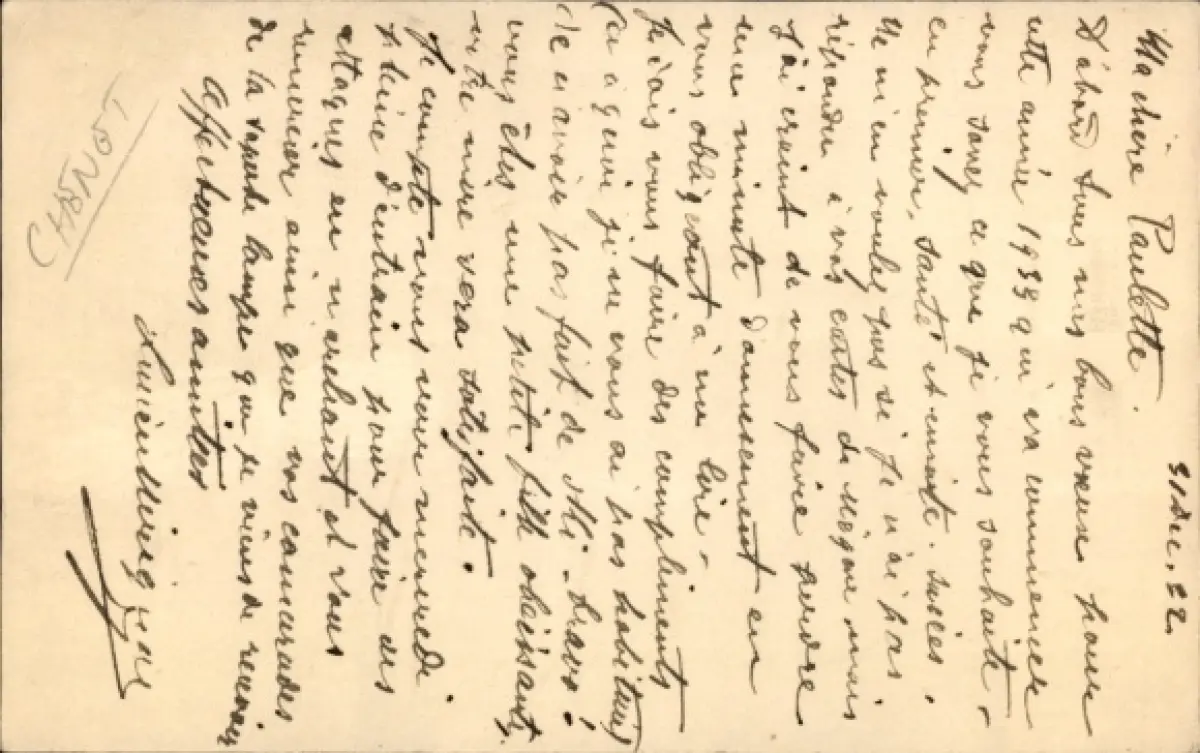 31 Déc. 22.
Ma chère Paulette.
D'abord tous mes bons vœux pour
cette année 1939 qui va commencer
vous savez ce que je vous souhaite -
en premier, santé et ensuite. succès.
Ne m'en voulez pas si je n'ai pas
répondu à vos cartes de Mégève mais
j'ai craint de vous faire perdre
une minute d'amusement en
vous obligeant à me lire -
Je vais vous faire des compliments
(ce à quoi je ne vous ai pas habituée)
de n'avoir pas fait de ski - bravo!
vous êtes une petite fille obéissante,
votre mère sera satisfaite.
Je compte vous voir mercredi
pleine d'entrain pour faire des
attaques en n'arrêtant et vous
remercier ainsi que vos camarades
de la superbe lampe que je viens de recevoir
affectueuses amitiés
Lucien
CHANOT